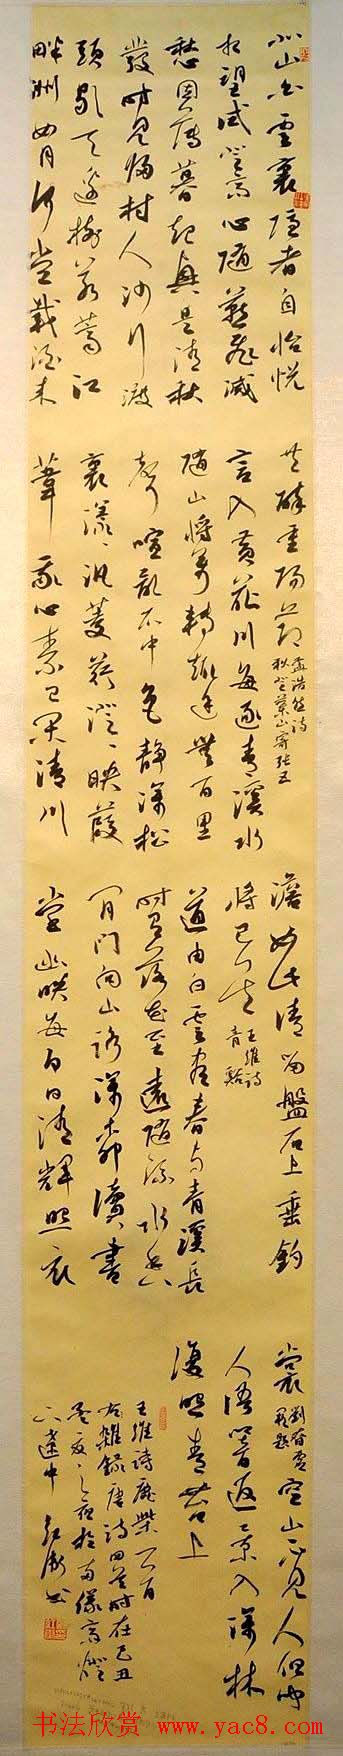 北山白雲裏隱者自怡悅
相望試登高心隨鴈飛滅
愁因薄暮起興是清秋
發時見歸村人沙行渡
頭歇天邊樹若薺江
畔洲如月何當載酒來
共醉重陽節
孟浩然詩
秋登蘭山寄張五
言入黃花川每逐青溪水
隨山將萬轉趣途無百里
聲喧亂石中色靜深松
裏漾〻汎菱荇澄〻映葭
葦我心素已閑清川
澹如此請留盤石上垂釣
將已矣
王維詩
青谿
道由白雲盡春與青溪長
時有落花至遠隨流水香
閑門向山路深柳讀書
堂幽映每白日清輝照衣
裳
劉眘虛
闕題
空山不見人但聞
人語響返景入深林
復照青苔上
王維詩鹿柴一首
右雜錄唐詩四首時在己丑
孟夏之夜於南高燈
下
書
书法欣赏 www.yac8.com